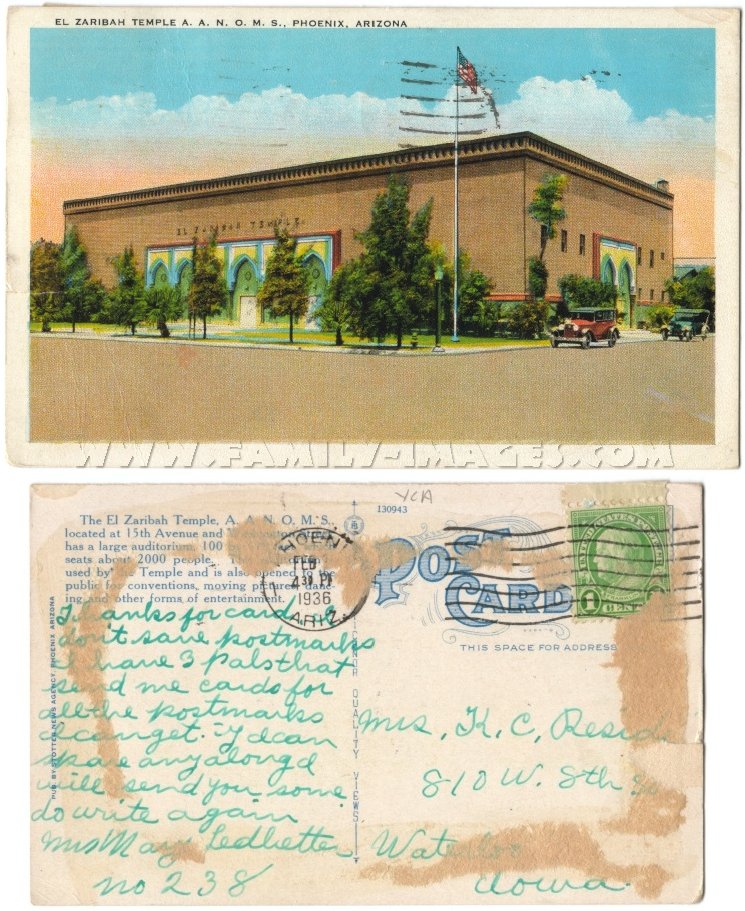 EL ZARIBAH TEMPLE A. A. N. O. M. S., PHOENIX, ARIZONA
EL ZARIBAH TEMPLE
WWW.FAMILY-IMAGES.COM
YCA
130943
The El Zaribah Temple, A. A. N. O. M. S.,
located at 15th Avenue and
has a large auditorium, 100
seats about 2000 people.
used by Temple and is also opened to the
public for conventions, moving pictures,
ing and other forms of entertainment.
PUB. BY STOTTER NEWS AGENCY, PHOENIX, ARIZONA
QUALITY VIEWS
FEB
4 30 PM
1936
ARIZ.
UNITED STATES POSTAGE
FRANKLIN
1 CENT
POST
CARD
THIS SPACE FOR ADDRESS
Thanks for card. I
don't save postmarks
I have 3 pals that
send me cards for
all the postmarks
I can get. If I can
spare any along I
will send you some
do write again
Mrs May Ledbetter
no 238
Mrs. K. C.
810 W. 8th
Waterloo
Iowa.